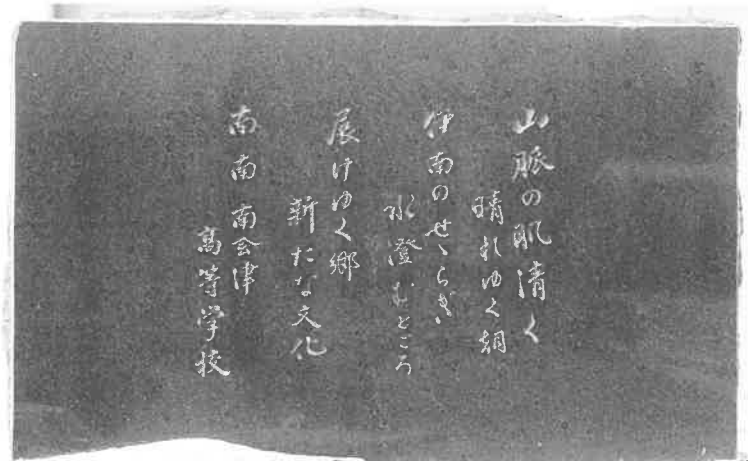 山脈の肌清く
晴れゆく朝
伊南のせゝらぎ
水澄むところ
展けゆく郷
新たな文化
南南南会津
高等学校